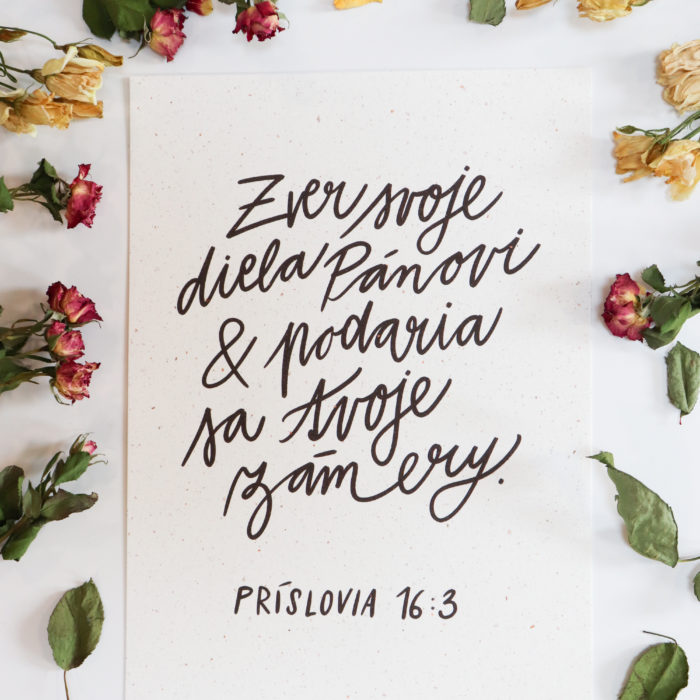 Zver svoje
diela Pánovi
& podaria
sa tvoje
zámery.
PRÍSLOVIA 16:3